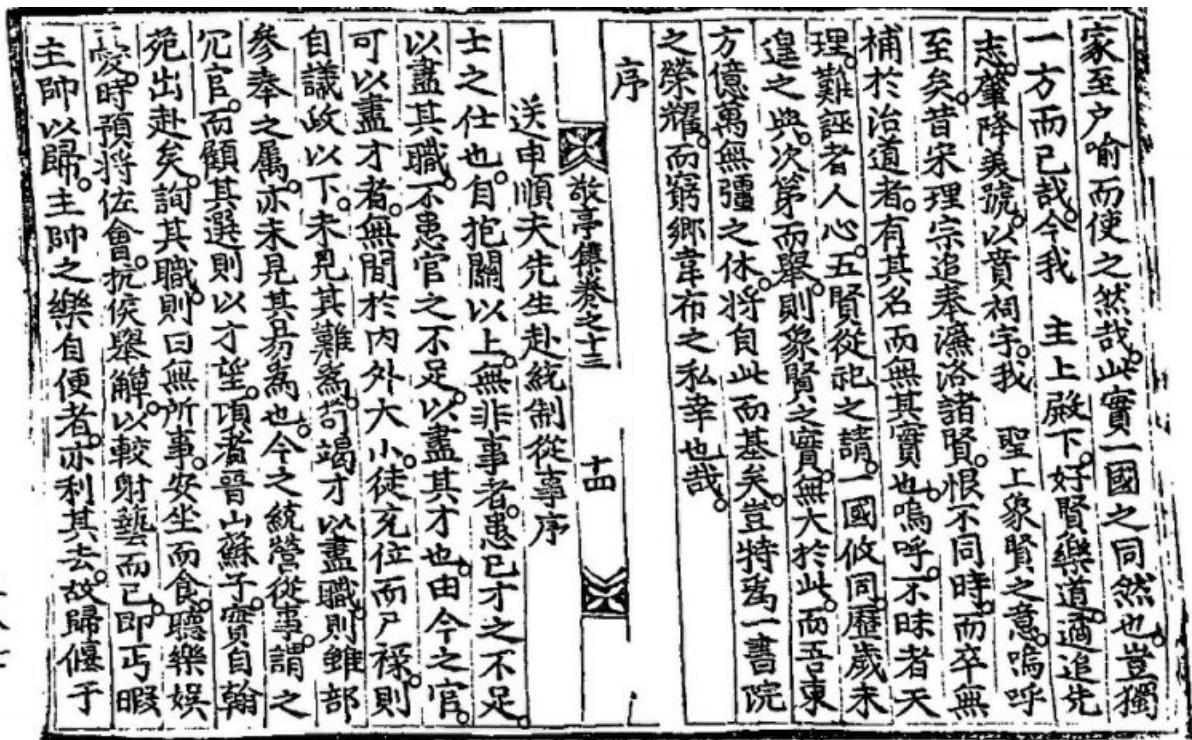 家至户喻而使之然哉此實一國之同然也豈獨
一方而已哉今我　主上殿下好賢樂道適追先
志肇降美號以賁祠宇我　聖上象賢之意嗚呼
至矣昔宋理宗追奉濂洛諸賢恨不同時而卒無
補於治道者有其名而無其實也嗚呼不昧者天
理難誣者人心五賢從祀之請一國攸同歷歲未
遑之典次第而擧則象賢之實無大於此而吾東
方億萬無疆之休將自此而基矣豈特爲一書院
之榮耀而窮鄉韋布之私幸也哉
序
敬亭集卷之十三　十四
送申順夫先生赴統制從事序
士之仕也自抱關以上無非事者患已才之不足
以盡其職不患官之不足以盡其才也由今之官
可以盡才者無間於内外大小徒充位而尸祿則
自議政以下未見其難爲苟竭才以盡職則雖部
參奉之屬亦未見其易爲也今之統營從事謂之
冗官而顧其選則以才望頃者晉山蘇子實自翰
苑出赴矣詢其職則曰無所事安坐而食聽樂娱
時預將佐會抗侯擧觶以較射藝而已即丐暇
主帥以歸主帥之樂自便者亦利其去故歸偃于